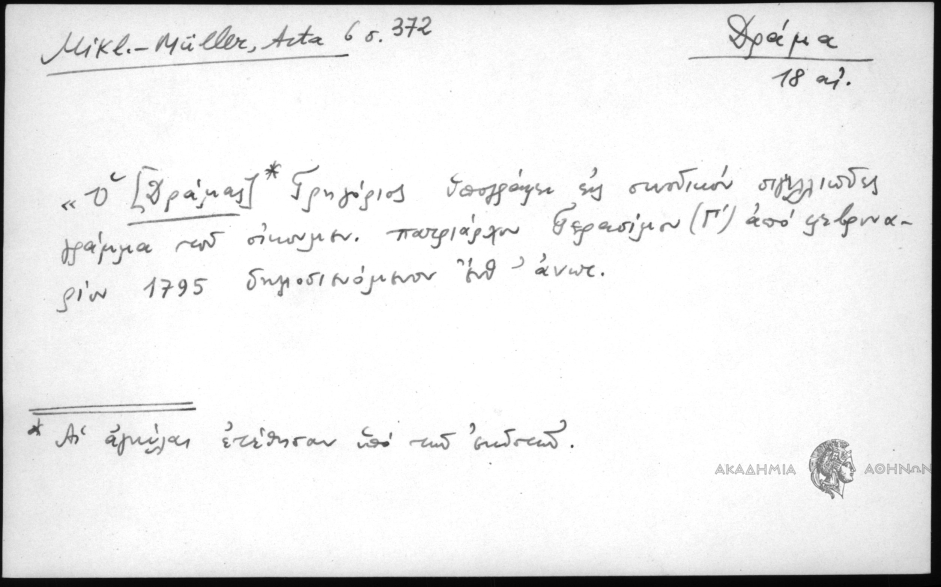 Mikl.-Müller, Acta 6 σ. 372
Δράμα
18 αἰ.
« ὁ [Δράμας]* Γρηγόριος ὑπογράφει εἰς συνοδικόν σιγιλλιῶδες
γράμμα τοῦ οἰκουμεν. πατριάρχου Γερασίμου (Γ') ἀπό φεβρουα-
ρίου 1795 δημοσιευόμενον ἔνθ' ἄνωτ.
* Αἱ ἀγκύλαι ἐτέθησαν ὑπό τοῦ ἐκδότου.
ΑΚΑΔΗΜΙΑ ΑΘΗΝΩΝ